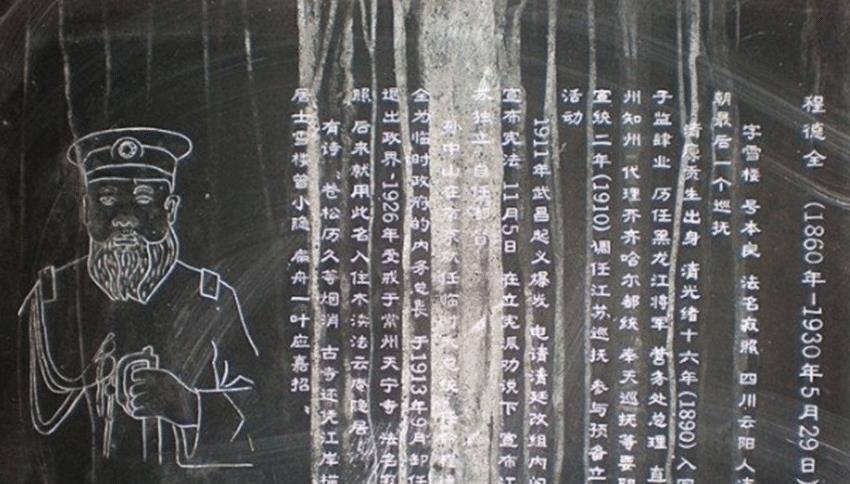 程德全 (1860年-1930年5月29日)
字雪楼 号本良 法名寂照 四川云阳人 清
朝最后一个巡抚
清廪贡生出身 清光绪十六年(1890)入国
子监肄业 历任黑龙江将军 营务处总理 直
州知州 代理齐齐哈尔都统 奉天巡抚等要职
宣统二年(1910)调任江苏巡抚 参与预备立
活动
1911年武昌起义爆发 电请清廷改组内阁
宣布宪法 11月5日 在立宪派劝说下 宣布江
苏独立 自任都督
孙中山在南京就任临时大总统 任命程德
全为临时政府的内务总长 于1913年9月卸任
退出政界 1926年受戒于常州天宁寺 法名寂
照 后来就用此名入住木渎法云庵隐居
有诗:苍松历久等烟消 古寺还凭江岸描
居士雪楼曾小隐 扁舟一叶应嘉招